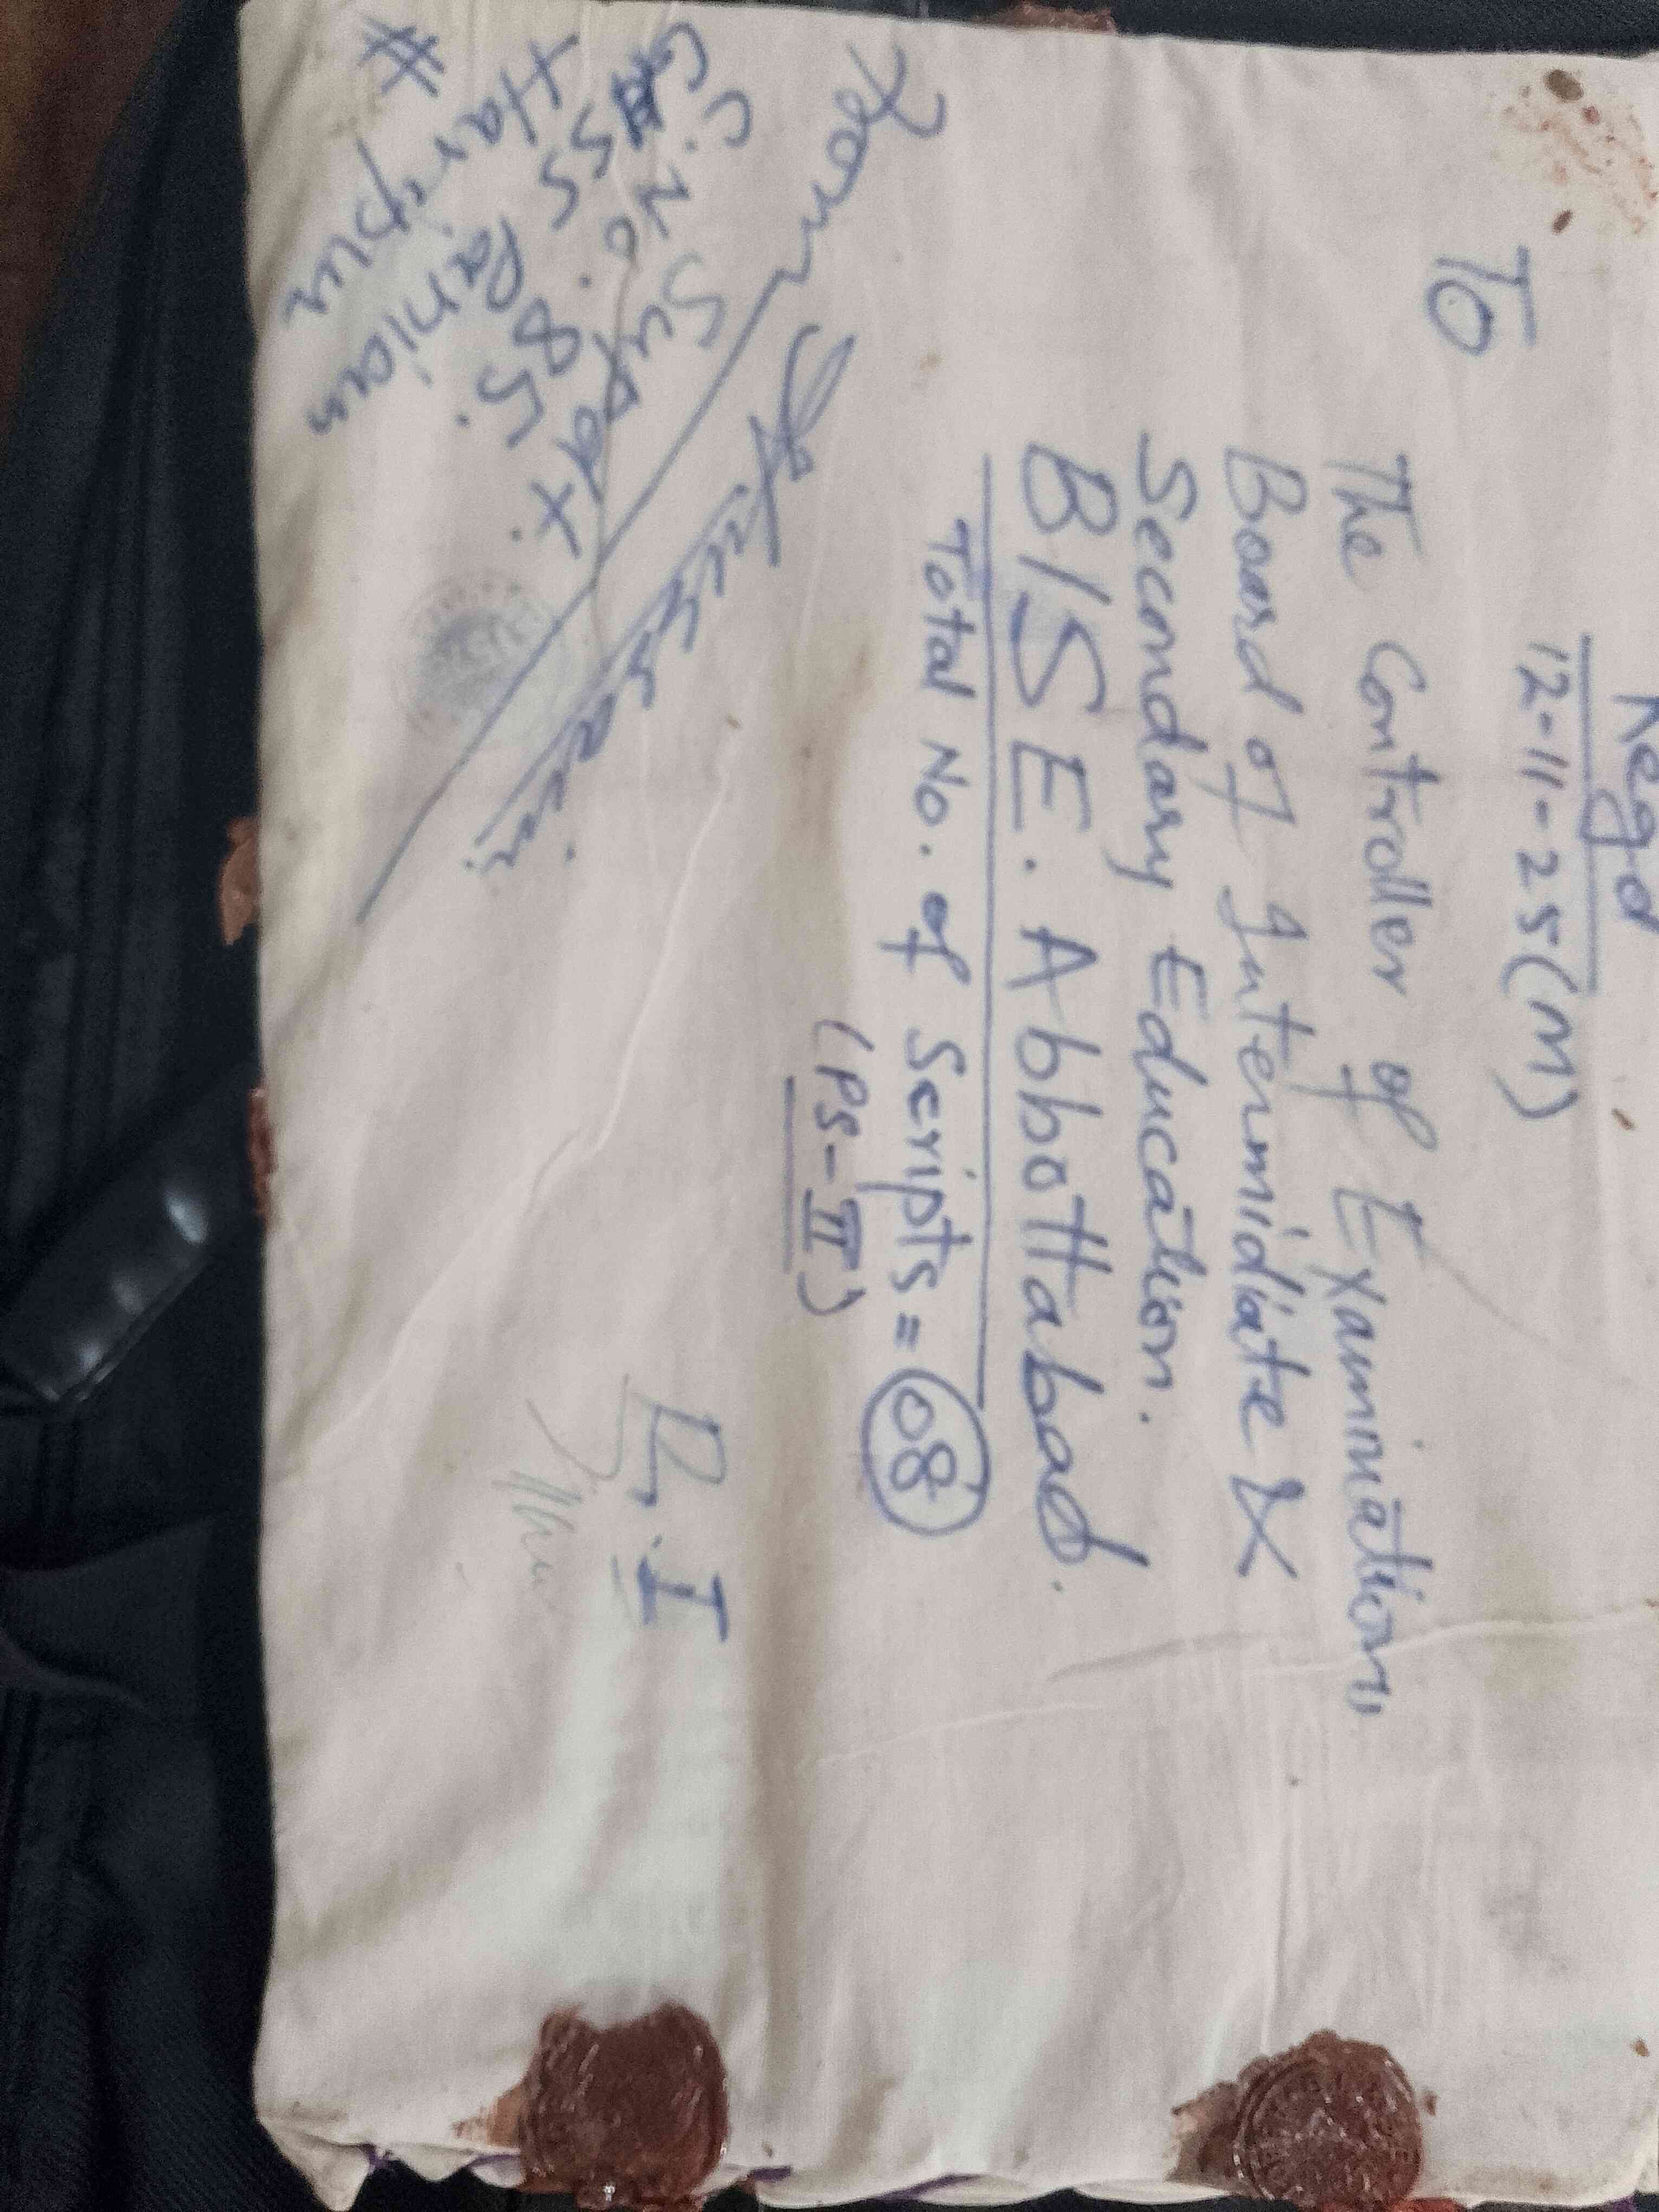 Regd
12-11-25 (M)
To
The Controller of Examination,
Board of Intermidiate &
Secondary Education.
BISE. Abbottabad.
Total No. of Scripts = 08
(PS-II)
From
Hussain.
Supdt.
C. No. 85.
GHSS Panian
Haripur
#
I